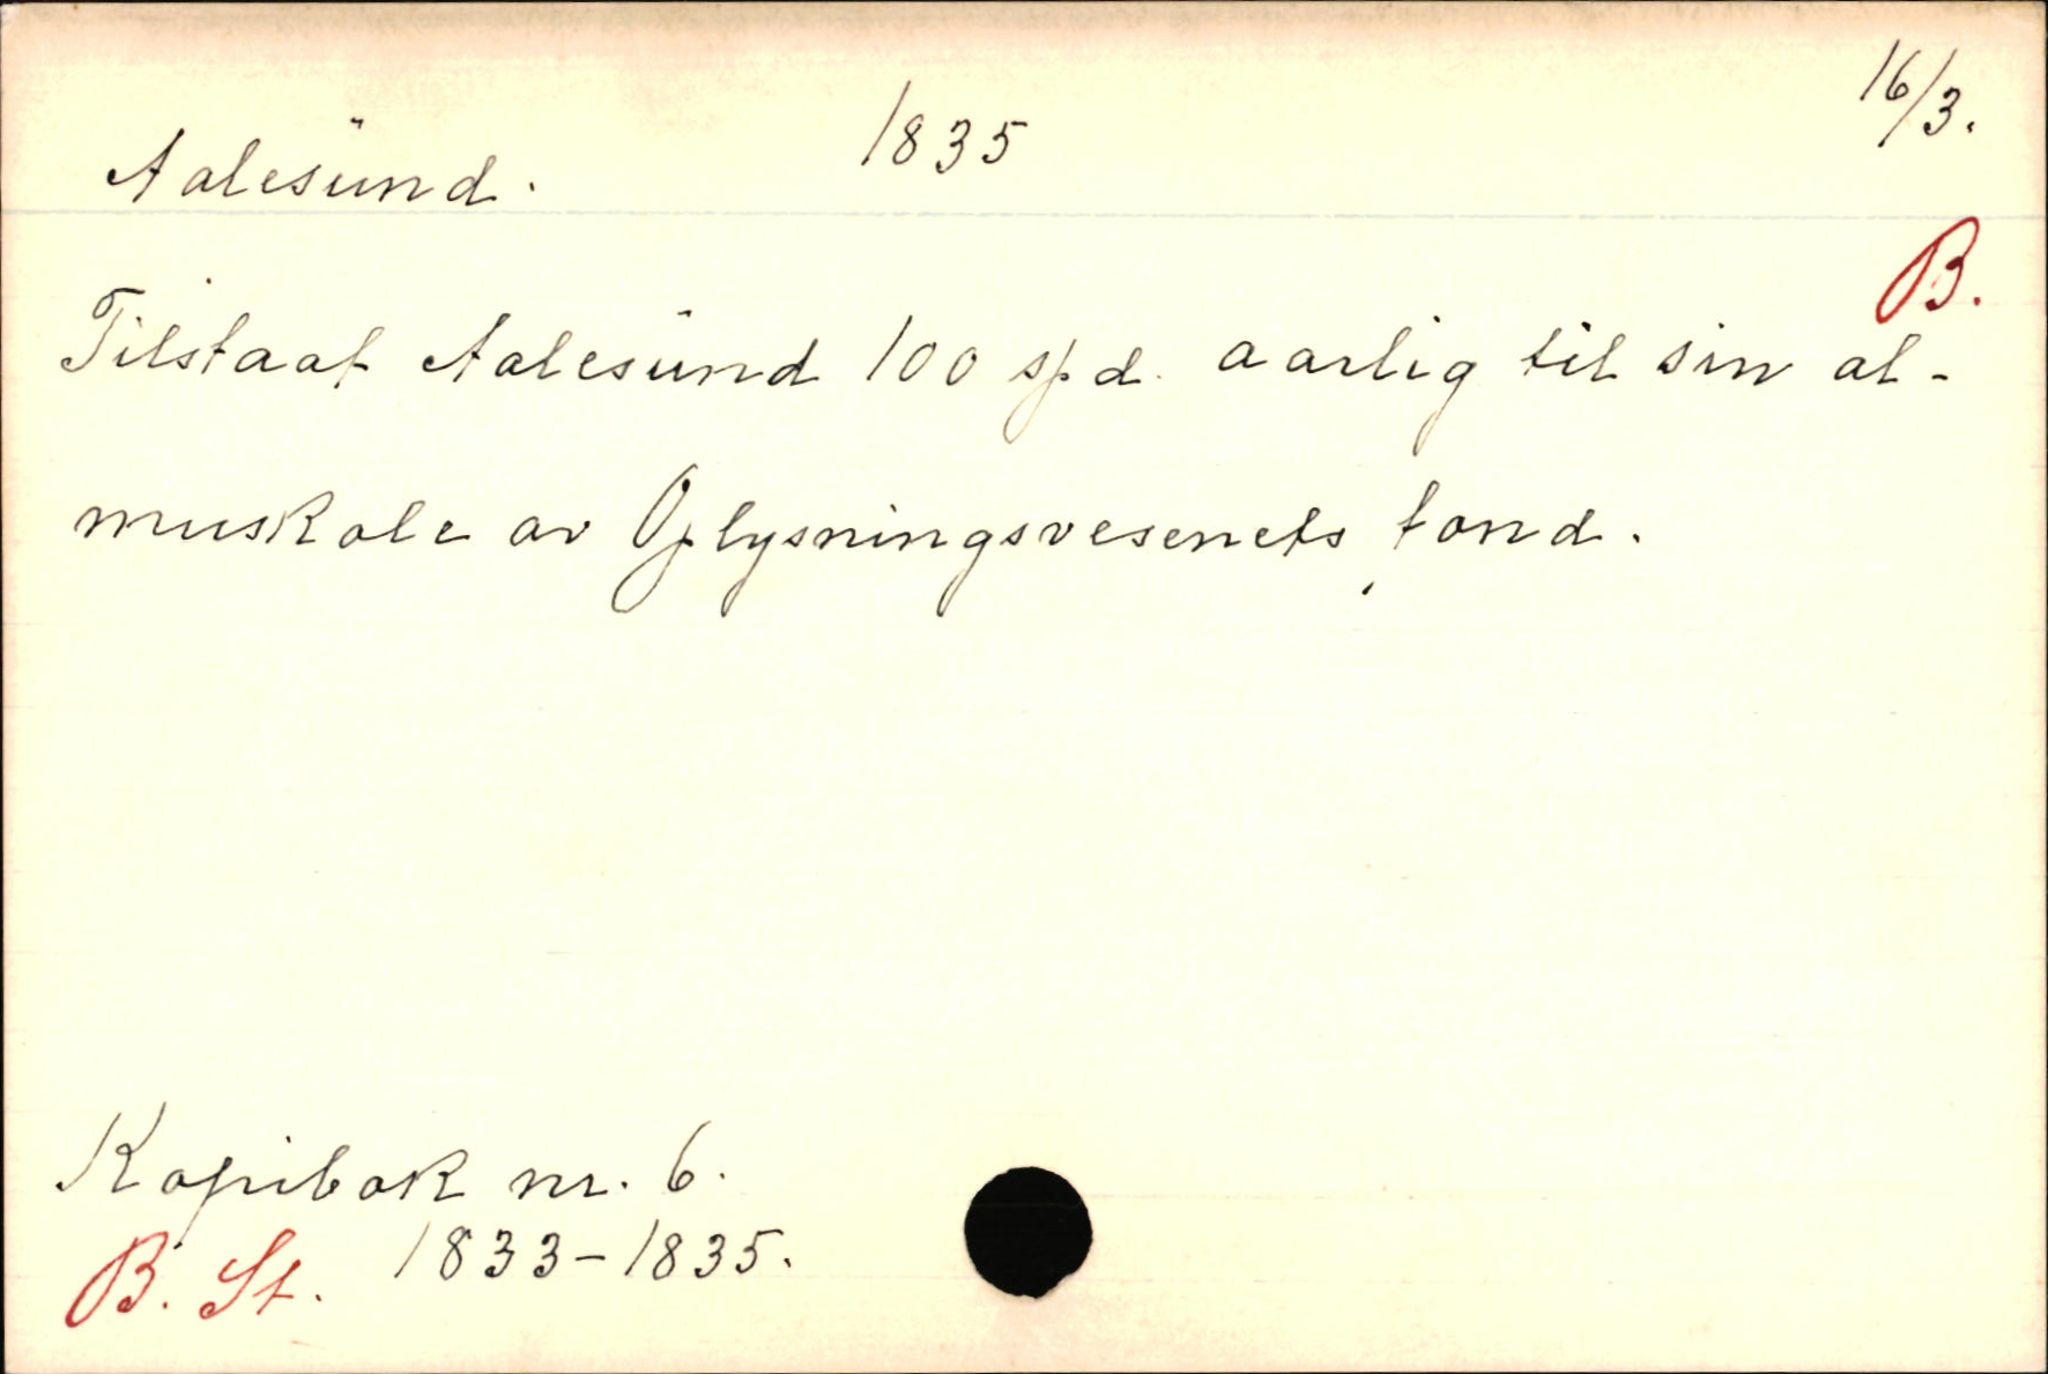 Aalesund. 1835 16/3.
B.
Tilstaat Aalesund 100 spd. aarlig til sin al-
muskole av Oplysningsvesenets fond.
Kopibok nr. 6.
B. St. 1833-1835.